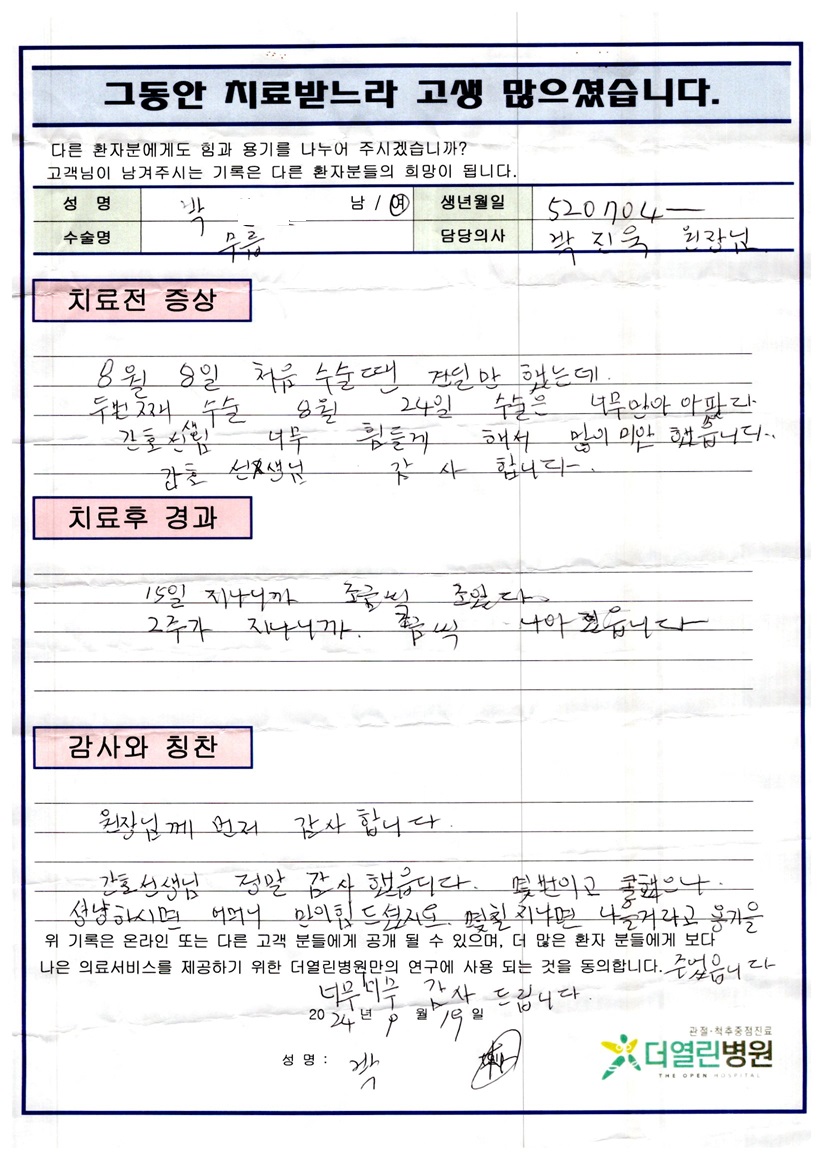 그동안 치료받느라 고생 많으셨습니다.
다른 환자분에게도 힘과 용기를 나누어 주시겠습니까?
고객님이 남겨주시는 기록은 다른 환자분들의 희망이 됩니다.
성 명 박 남 / 여 생년월일 520704ㅡ
수술명 무릎 담당의사 박진욱 원장님
치료전 증상
8월 8일 처음 수술땐 견딜만 했는데.
두번째 수술 8월 24일 수술은 너무많아 아팠다
간호선생님 너무 힘들게 해서 많이 미안 했습니다.
간호 선생님 감사 합니다.
치료후 경과
15일 지나니까 조금씩 조았다.
2주가 지나니까. 조금씩 나아 젔읍니다
감사와 칭찬
원장님께 먼저 감사 합니다.
간호선생님 정말 감사 했읍니다. 몇번이고
성냥하시면 어머니 만이힘드셨지요. 몇칠 지나면 나을거라고 용기을
위 기록은 온라인 또는 다른 고객 분들에게 공개 될 수 있으며, 더 많은 환자 분들에게 보다
나은 의료서비스를 제공하기 위한 더열린병원만의 연구에 사용 되는 것을 동의합니다. 주었읍니다
너무너무 감사 드립니다.
2024년 9월 19일
관절·척추중점진료
더열린병원
THE OPEN HOSPITAL
성 명 : 박